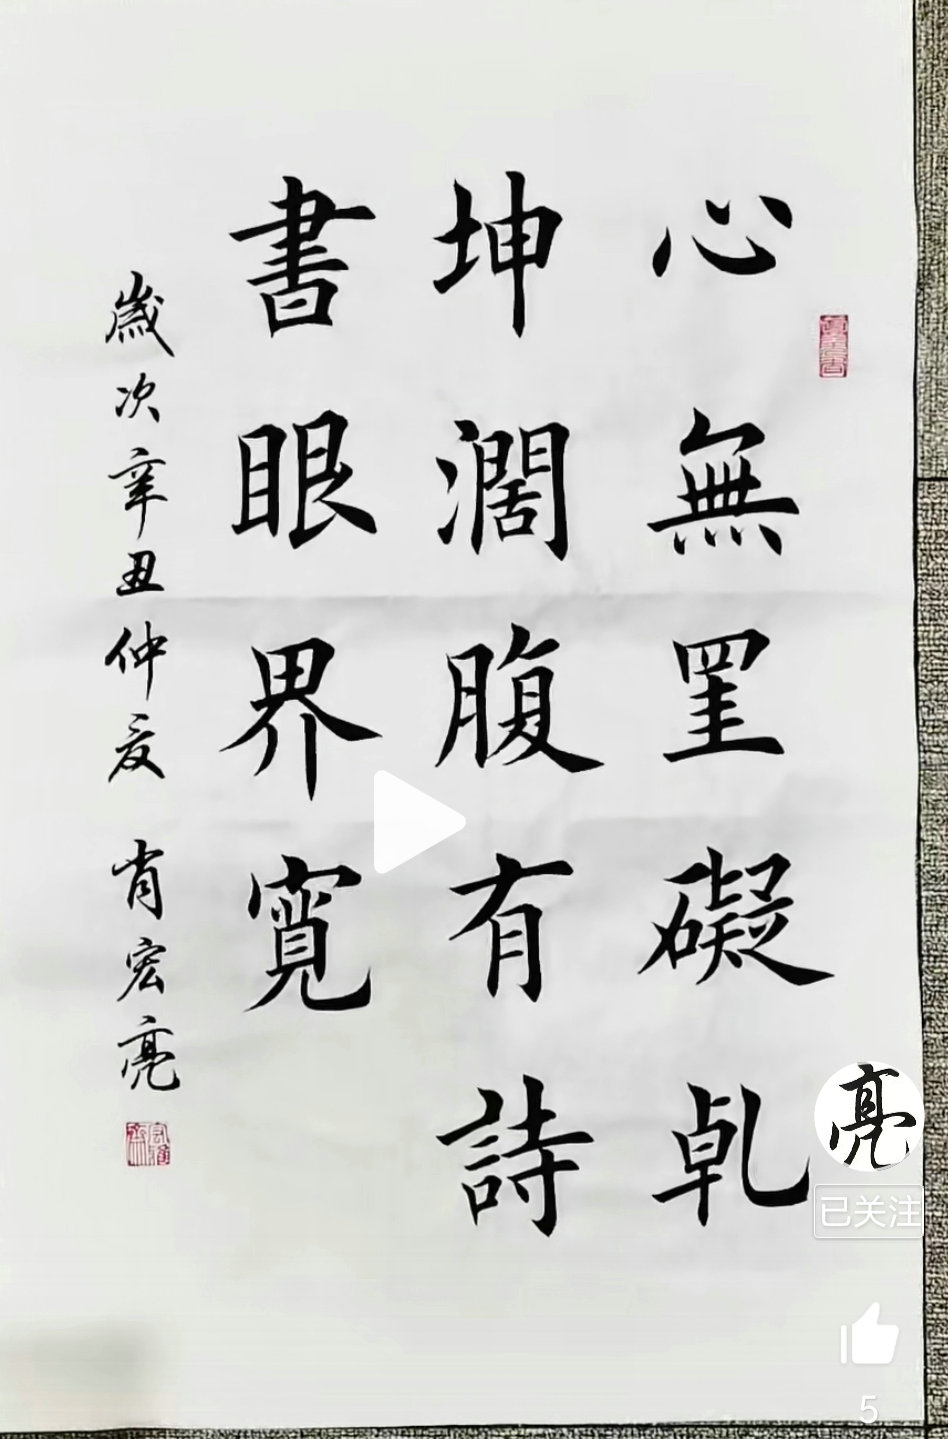 心無罣礙乾
坤濶腹有詩
書眼界寬
歲次辛丑仲夏 肖宏亮
亮
已关注
5